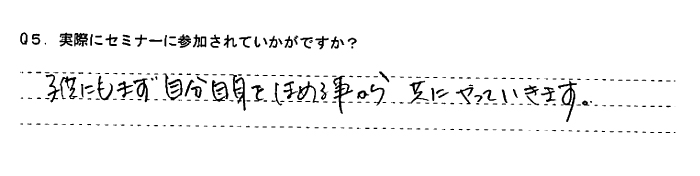 Q5. 実際にセミナーに参加されていかがですか？
子供にもまず自分自身をほめる事から 共にやっていきます。